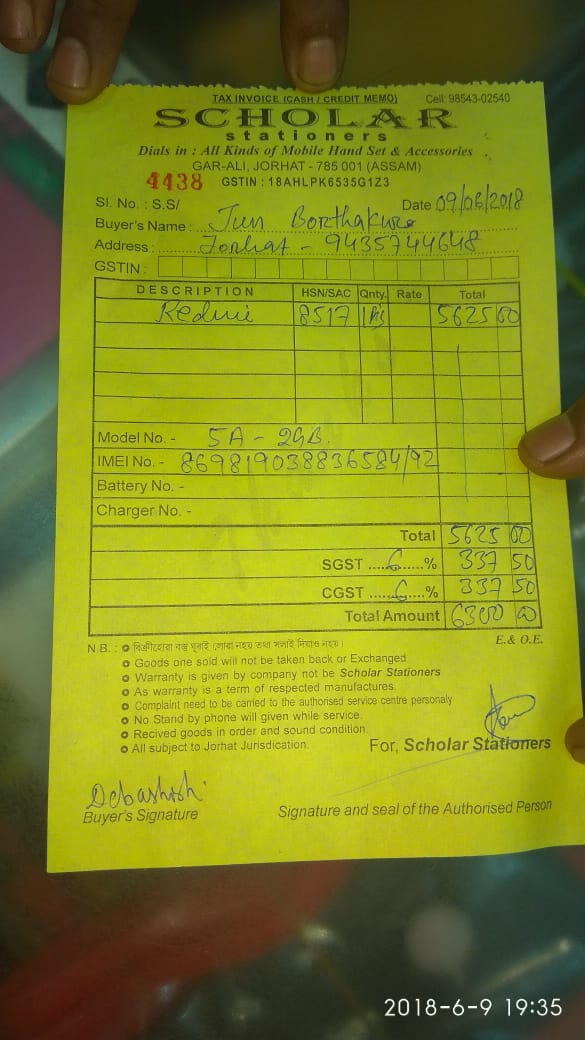 TAX INVOICE (CASH / CREDIT MEMO) Cell: 98543-02540
SCHOLAR
stationers
Dials in : All Kinds of Mobile Hand Set & Accessories
GAR-ALI, JORHAT - 785 001 (ASSAM)
4438 GSTIN : 18AHLPK6535G1Z3
Sl. No. : S.S/ Date 09/06/2018
Buyer's Name : Jun Borthakur
Address : Jorhat - 9435744648
GSTIN :
DESCRIPTION HSN/SAC Qnty. Rate Total
Redmi 8517 1Ps 5625 00
Model No. - 5A - 2GB.
IMEI No. - 869819038836584/92
Battery No. -
Charger No. -
Total 5625 00
SGST ....6.....% 337 50
CGST ....6....% 337 50
Total Amount 6300 00
E. & O.E.
N.B. : বিক্ৰীহোৱা বস্তু ঘূৰাই লোৱা নহয় তথা সলাই দিয়াও নহয়।
Goods one sold will not be taken back or Exchanged
Warranty is given by company not be Scholar Stationers
As warranty is a term of respected manufactures.
Complaint need to be carried to the authorised service centre personaly
No Stand by phone will given while service.
Recived goods in order and sound condition.
All subject to Jorhat Jurisdication.
For, Scholar Stationers
Debashish.
Buyer's Signature
Signature and seal of the Authorised Person
2018-6-9 19:35